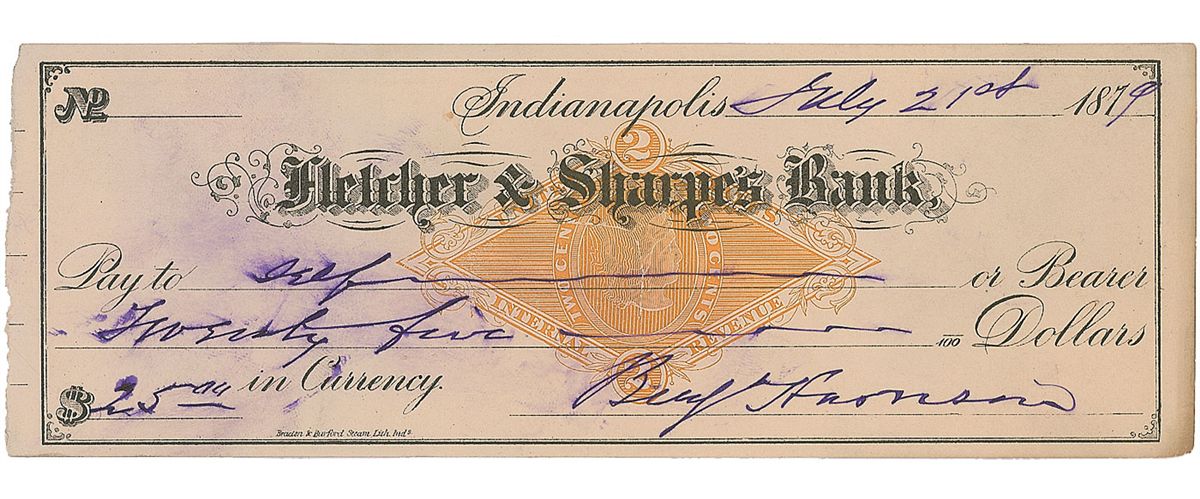 No Indianapolis July 21st 1879
Fletcher & Sharpe's Bank,
Pay to self or Bearer
Twenty five 100 Dollars
$25.00 in Currency. Benj Harrison
Braden & Burford Steam Lith. Inds.
2
TWO CENTS
INTERNAL REVENUE
2